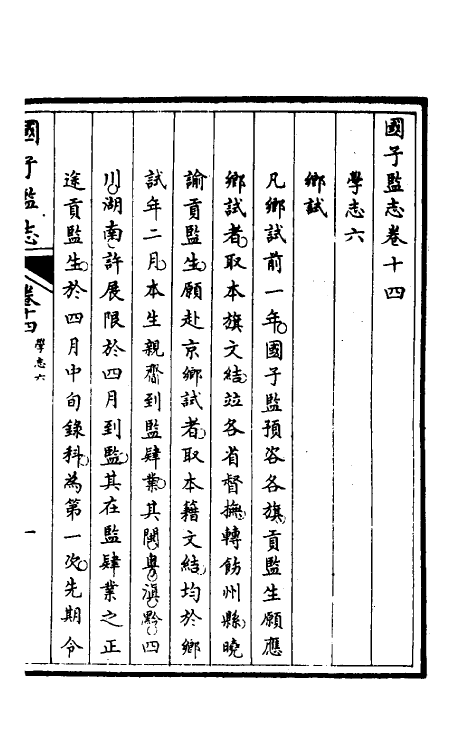 國子監志卷十四
學志六
鄉試
凡鄉試前一年國子監預咨各旗貢監生願應
鄉試者取本旗文結竝各省督撫轉飭州縣曉
諭貢監生願赴京鄉試者取本籍文結均於鄉
試年二月本生親齎到監肄業其閩粵滇黔四
川湖南許展限於四月到監其在監肄業之正
途貢監生於四月中旬錄科為第一次先期令
國子監志 卷十四 學志六 一